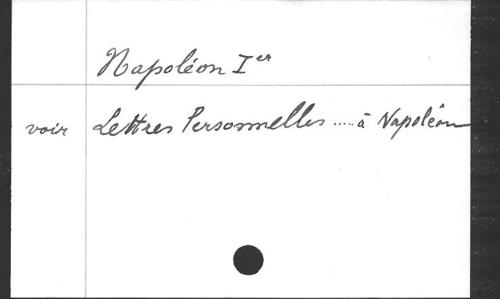 Napoléon Ier
voir Lettres Personnelles ..... à Napoléon